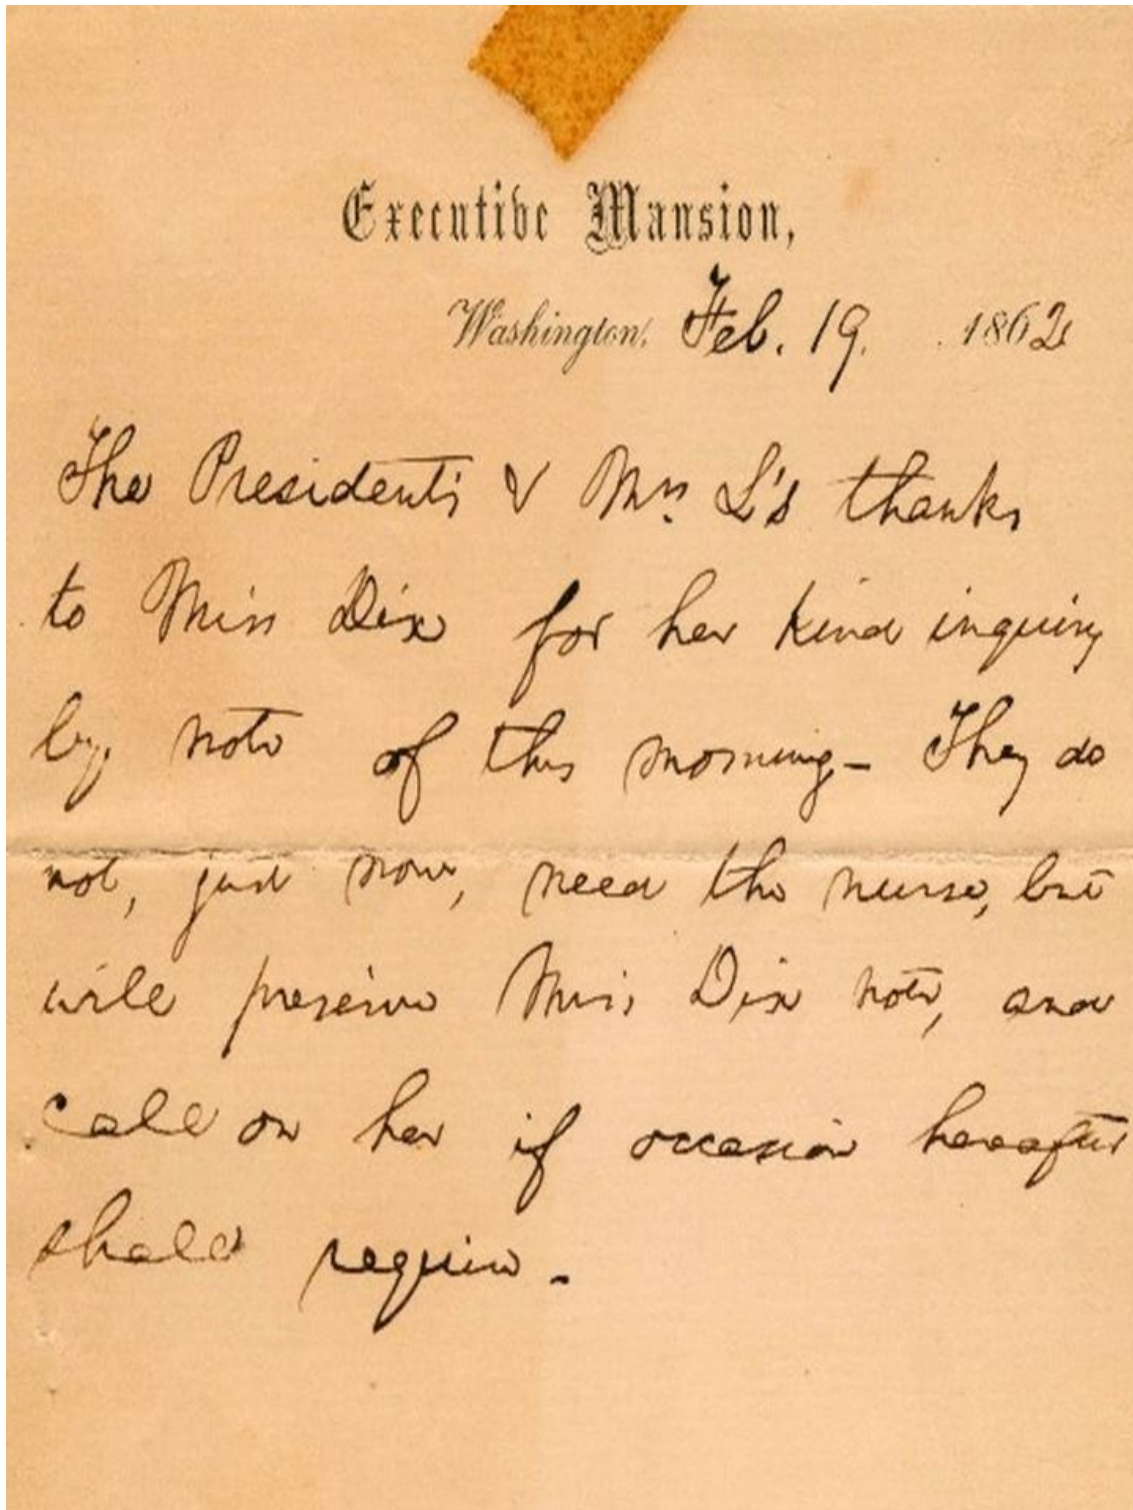 Executive Mansion,
Washington, Feb. 19. 1862
The President's & Mrs. L's thanks
to Miss Dix for her kind inquiry
by note of this morning - They do
not, just now, need the nurse, but
will preserve Miss Dix note, and
call on her if occasion hereafter
shall require.